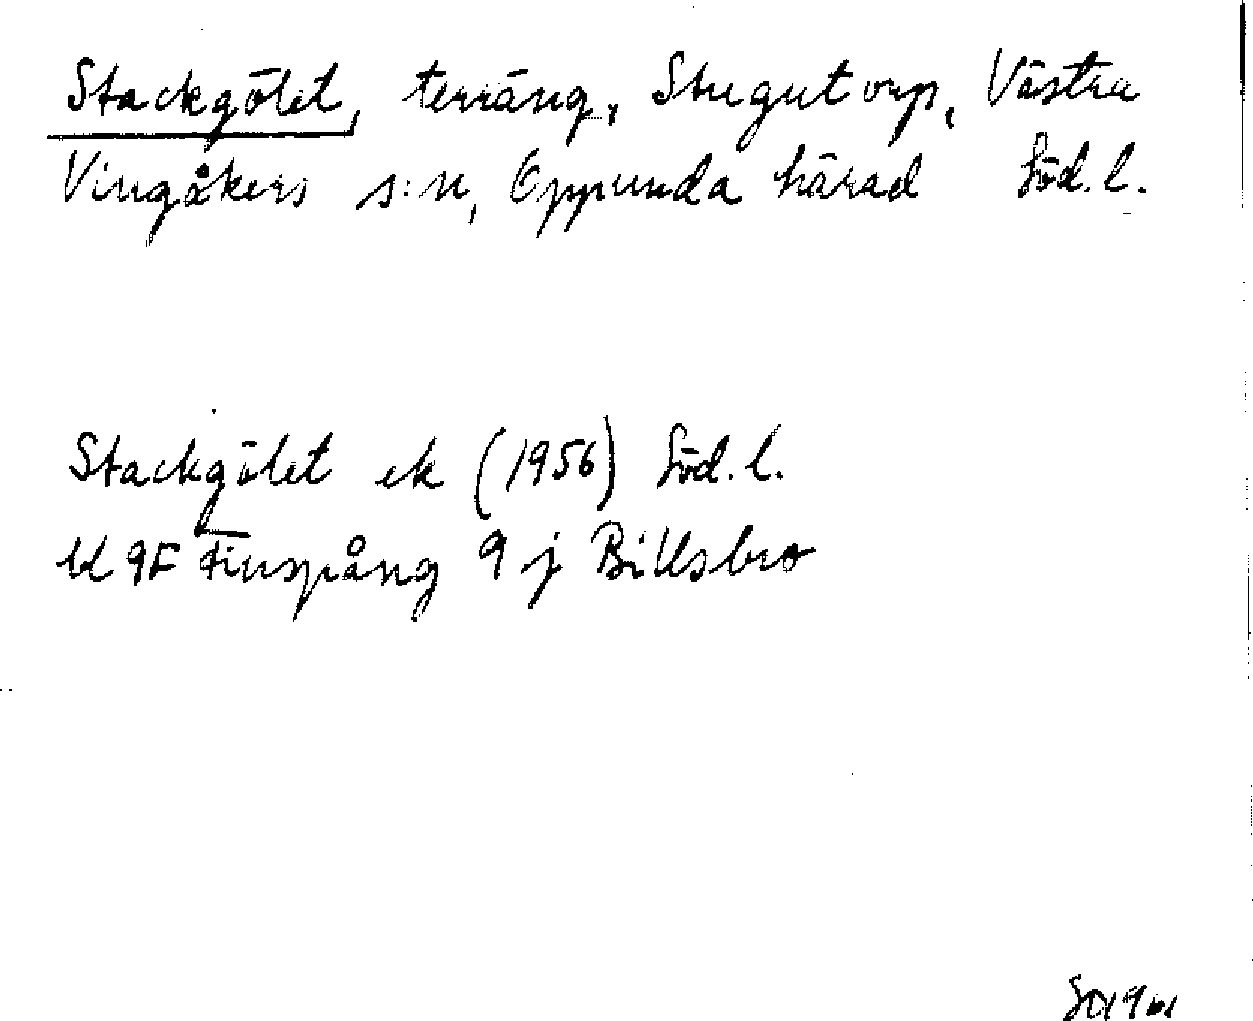 Stackgölet, terräng, Stugutorp, Västra
Vingåkers s:n, Oppunda härad Söd. l.
Stackgölet ek (1956) Söd. l.
bl 9F Finspång 9 j Billsbro